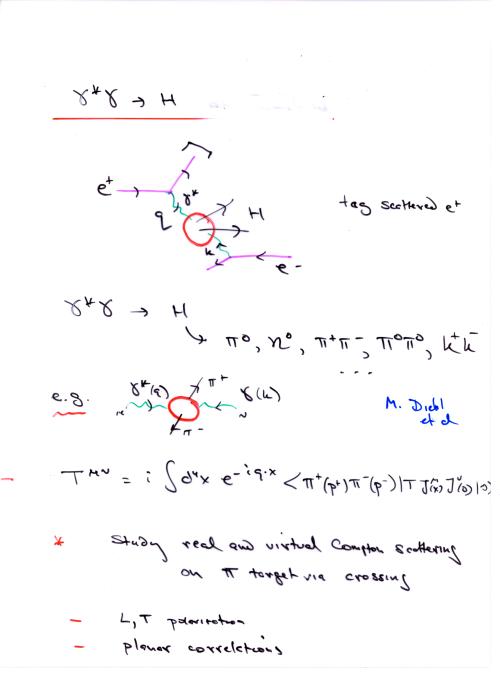 γ*γ → H
e+
γ*
q
H
tag scattered e+
k
e-
γ*γ → H
↳ π⁰, η⁰, π+π-, π⁰π⁰, k+k-
...
e.g. γ*(q) π+ γ(k)
M. Diehl
et al
μ ν
π-
- T^{μν} = i ∫d⁴x e^{-iq·x} <π+(p+)π-(p-)|T J^μ(x) J^ν(0)|0>
* Study real and virtual Compton scattering
on π target via crossing
- L, T polarization
- planar correlations